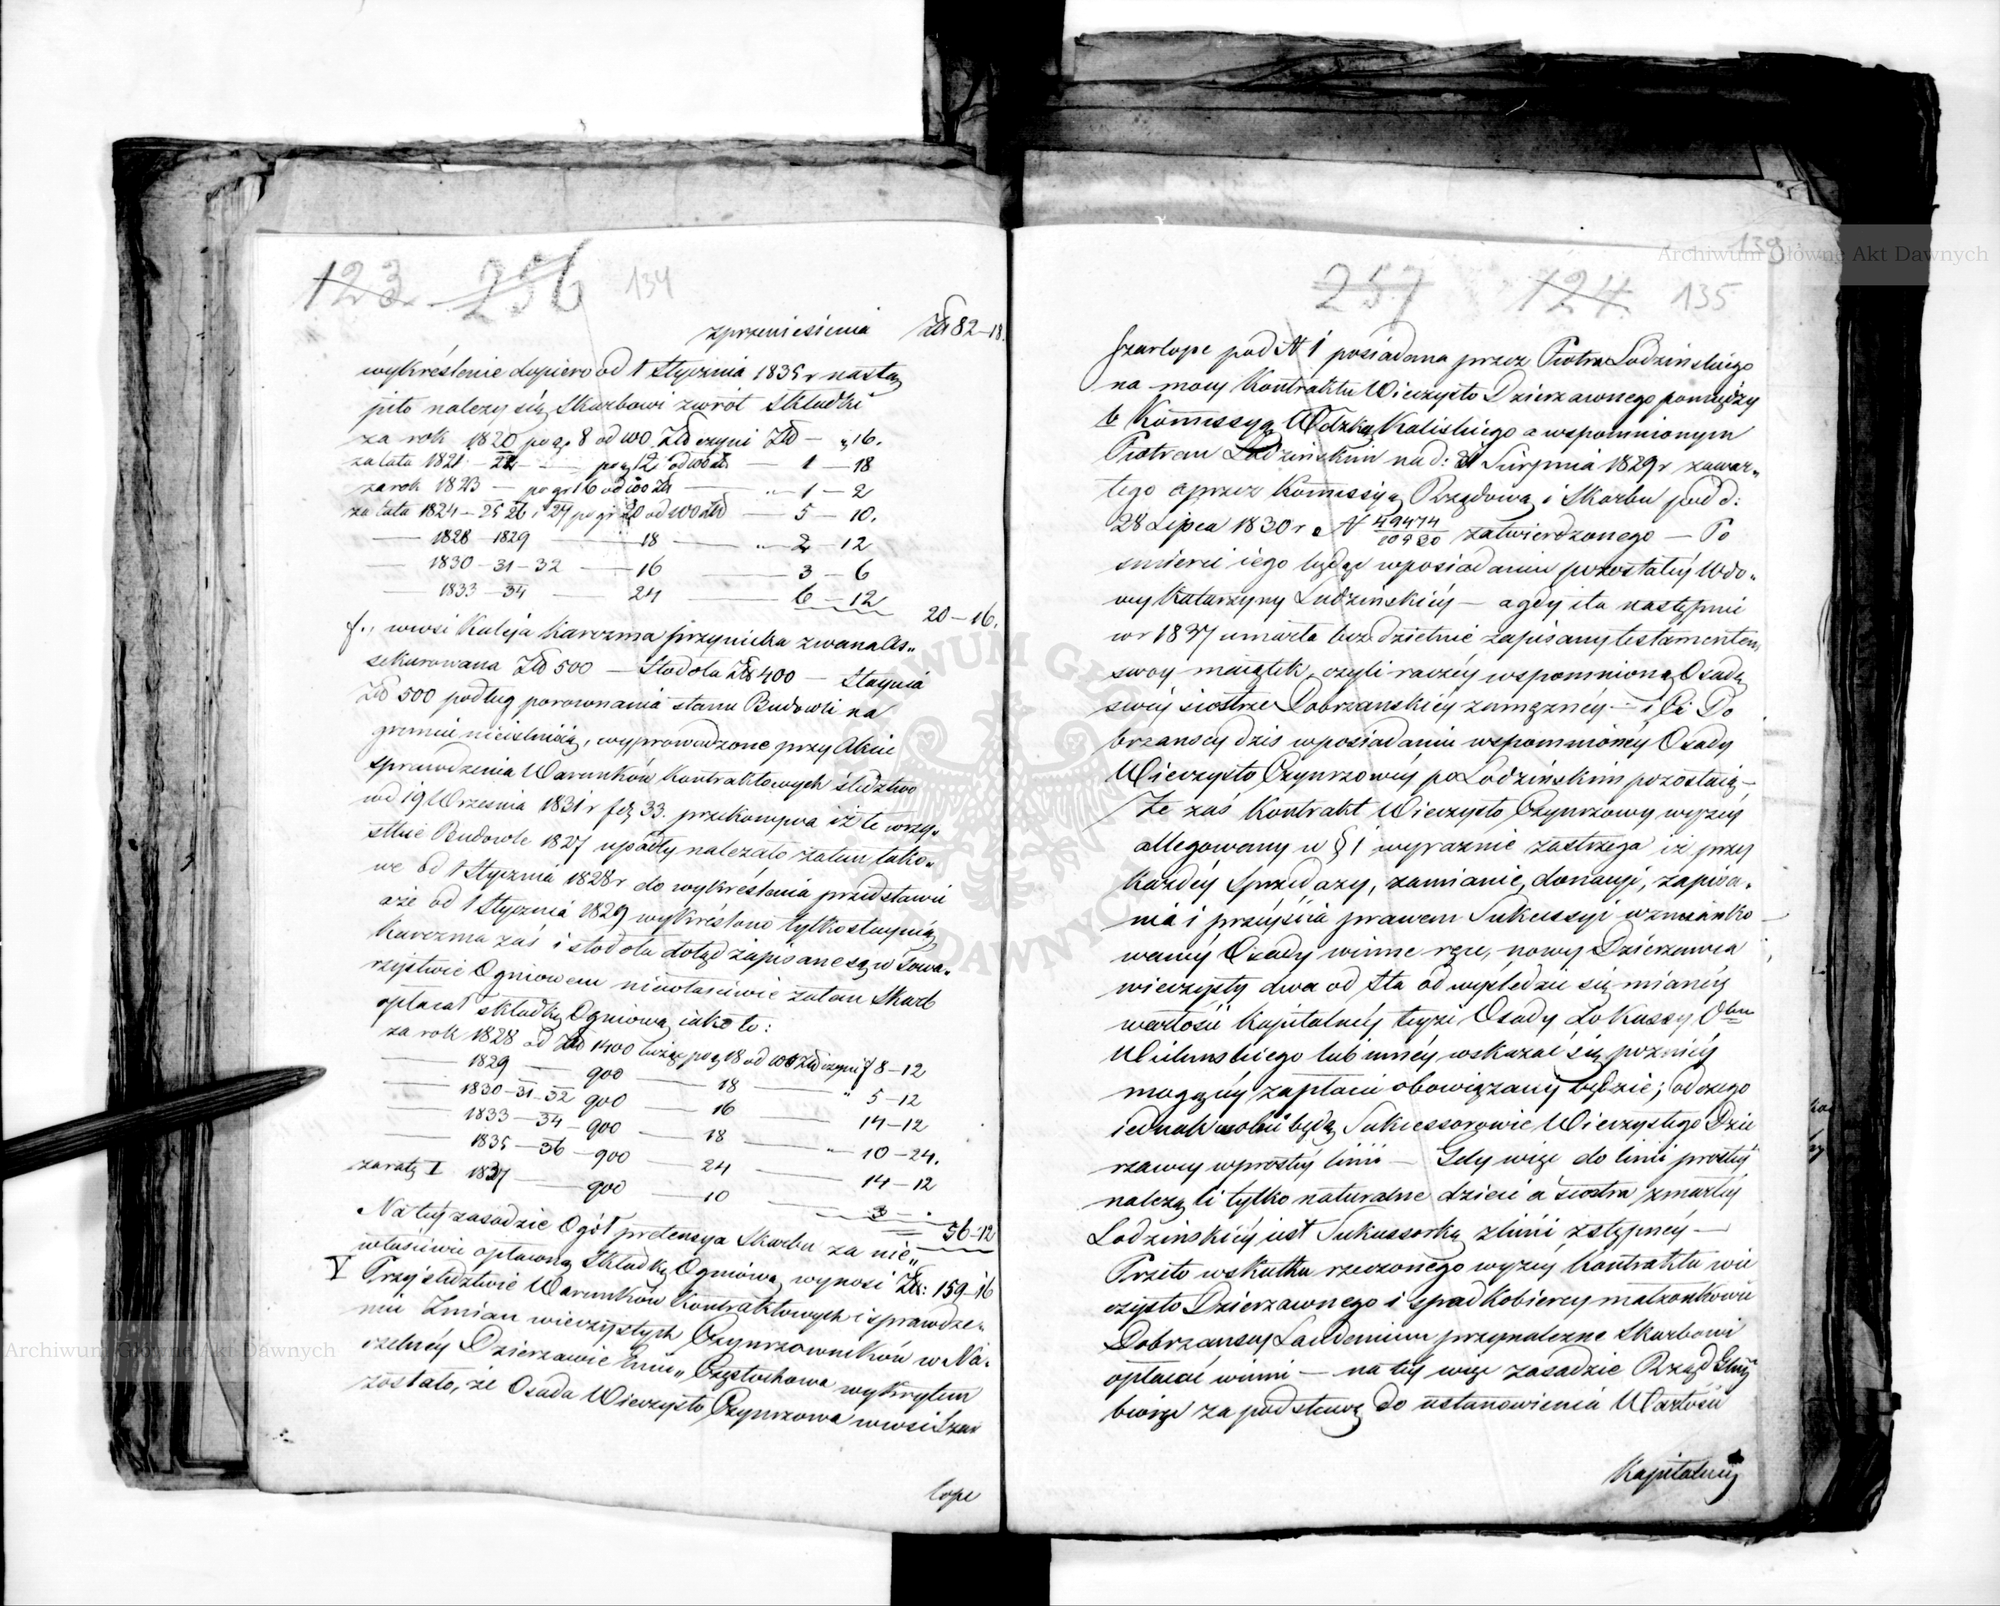 123 256 134
z przeniesienia Złt 82–18.
wykréślenie dopiero od 1 Stycznia 1835 r nastą
piło należy się Skarbowi zwrót Składki
za rok 1820 po gr 8 od 100 Złł czyni Złł — „ 16.
za lata 1821 – 22 — po gr 12 od 100 złł — 1 — 18
za rok 1823 — po gr 16 od 100 Złł — „ 1 — 2
za lata 1824 – 25 26 i 27 po gr 20 od 100 złł — 5 — 10.
— 1828 – 1829 — 18 — „ 2 — 12
— 1830 – 31 – 32 — 16 — 3 — 6
— 1833 – 34 — 24 — 6 — 12
20 — 16.
f., w wsi Kuleja Karczma przynitka zwana As„
sekurowana Złł 500 — Stodoła Złł 400 — Staynia
Złł 500 podług porównania stanu Budowli na
gruncie nieistnieią, wyprowadzone przy Akcie
sprawdzenia Warunków Kontraktowych śledztwo
w d 19 Września 1831 r 33. przekonywa iż te wszy„
stkie Budowle 1827 upadły należało zatem tako„
we od 1 Stycznia 1828 r do wykréślenia przedstawić
a że od 1 Stycznia 1829 wykréślono tylko staynią,
Karczma zaś i stodoła dotąd zapisane są w Towa„
rzystwie Ogniowem niewłaściwie zatem Skarb
opłacał składkę Ogniową iako to:
za rok 1828 od Złł 1400 licząc po gr 18 od 100 Złł czyni f 8–12
— 1829 — 900 — 18 — „ 5–12
— 1830–31–32 900 — 16 — 14–12
— 1833–34 – 900 — 18 — „ 10–24.
— 1835–36 – 900 — 24 — 14–12
za ratę I 1837 — 900 — 10 — 3 – „
56–12
Na tey zasadzie Ogół pretensya Skarbu za nie„
właściwie opłaconą Składkę Ogniową wynosi Złł: 159–16
V Przy śledztwie Warunków Kontraktowych i sprawdze„
niu Zmian wieczystych Czynszowników w Na„
czelnéy Dzierzawie Ekon„ Częstochowa wykrytem
zostało, że Osada Wieczysto Czynszowa w wsi Szar
łope
139
257 124 135
Szarłope pod N 1 posiadana przez Piotra Lodzińskiego
na mocy Kontraktu Wieczysto Dzierzawnego pomiędzy
b Komissyą Wdzką Kaliskiego a wspomnionym
Piotrem Lodzińskim na d: 31 Sierpnia 1829 r zawar„
tego a przez Komissyą Rządową i Skarbu pod d:
28 Lipca 1830 r N 49474/10930 zatwierdzonego — Po
śmierci iego będąc w posiadaniu pozostałéy Wdo„
wy Katarzyny Lodzińskiéy — a gdy ta następnie
w r 1837 umarła bezdzietnie zapisany testamentem
swoy maiątek, czyli raczéy wspomnioną Osadę
swéy siostrze Dobrzanskiéy zamężnéy — i Ci Do
brzanscy dziś w posiadaniu wspomnionéy Osady
Wieczysto Czynszowéy po Lodzińskim pozostaią —
Że zaś Kontrakt Wieczysto Czynszowy wyzéy
allegowany w § 1 wyraznie zastrzega iż przy
każdéy Sprzedazy, zamianie, donacyi, zapisa„
nia i przeyścia prawem Sukcessyi wzmianko
wanéy Osady w inne ręce, nowy Dzierzawca
wieczysty dwa od Sta od wyśledzić się mianéy
wartości kapitalnéy teyże Osady do Kassy Obw
Wieluńskiego lub innéy wskazać się poznieéy
mogącéy zapłacić obowiązany będzie; od czego
iednak wolni będą Sukcessorowie Wieczystego Dzie
rzawcy w prostéy linii — Gdy więc do linii prostéy
należą li tylko naturalne dzieci a siostra zmarłéy
Lodzińskiéy iest Sukcessorką z linii zstępnéy —
Przeto w skutku rzeczonego wyzéy kontraktu wie
czysto Dzierzawnego i spadkobiercy małżonkowie
Dobrzanscy Laudemium przynalezne Skarbowi
opłacić winni — na téy więc zasadzie Rząd Gbny
biorąc za podstawę do ustanowienia Wartości
Kapitalnéy
Archiwum Główne Akt Dawnych
Archiwum Główne Akt Dawnych